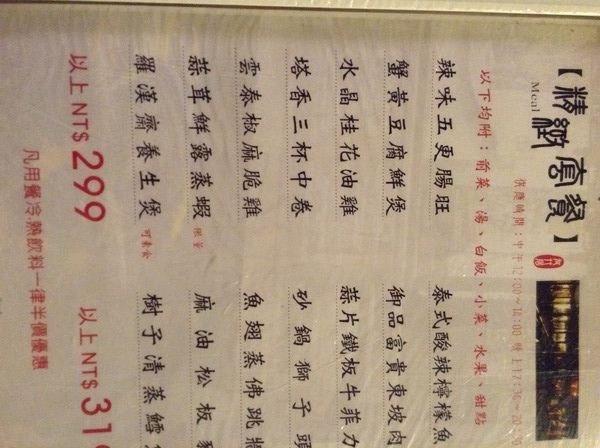 【精緻套餐】
Meal
供應時間:中午12:00~14:00 晚上17:30~20
以下均附:前菜、湯、白飯、小菜、水果、甜點
辣味五更腸旺
蟹黃豆腐鮮煲
水晶桂花油雞
塔香三杯中卷
雲泰椒麻脆雞
蒜茸鮮露蒸蝦 限量
羅漢齋養生煲 可素食
以上NT$299
泰式酸辣檸檬魚
御品富貴東坡肉
蒜片鐵板牛菲力
砂鍋獅子頭
魚翅蒸佛跳牆
麻油松板
樹子清蒸鱈
以上NT$31
凡用餐冷熱飲料一律半價優惠